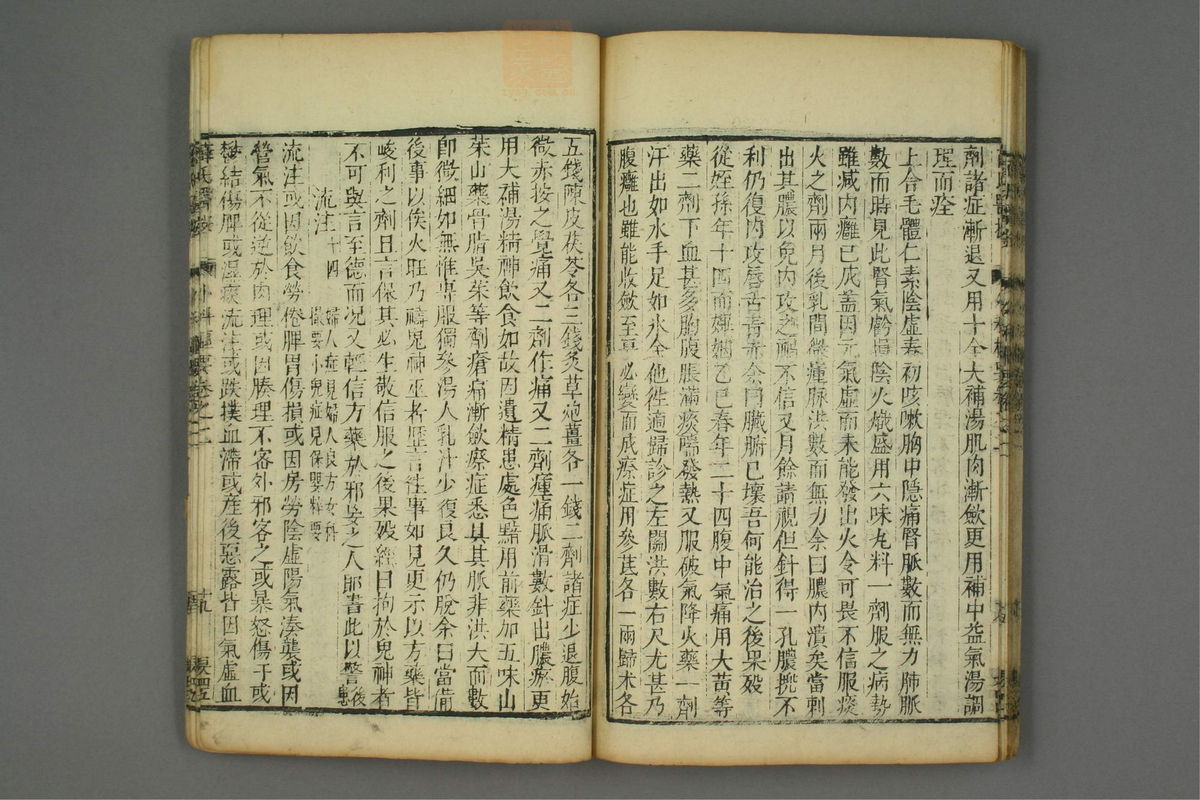 劑諸症漸退又用十全大補湯肌肉漸斂更用補中益氣湯調
理而痊
上舍毛體仁素陰虛春初咳嗽胸中隱痛腎脈數而無力肺脈
數而時見此腎氣虧損陰火熾盛用六味丸料一劑服之病勢
雖減內癰已成蓋因元氣虛而未能發出火令可畏不信服痰
火之劑兩月後乳間微腫脉洪數而無力余曰膿內潰矣當刺
出其膿以免內攻之禍不信又月餘請視但針得一孔膿攪不
利仍復內攻唇舌青赤余曰臟腑已壞吾何能治之後果歿
從姪孫年十四而婚姻乙巳春年二十四腹中氣痛用大黃等
藥二劑下血甚多胸腹脹滿痰喘發熱又服破氣降火藥一劑
汗出如水手足如氷全他徃適歸診之左關洪數右尺尤甚乃
腹癰也雖能收斂至夏必變而成瘵症用參芪各一兩歸朮各
五錢陳皮茯苓各三錢炙草炮薑各一錢二劑諸症少退腹始
微赤按之覺痛又二劑作痛又二劑腫痛脈滑數針出膿瘀更
用大補湯精神飲食如故因遺精患處色黯用前藥加五味山
茱山藥骨脂吳茱等劑瘡痛漸斂瘵症悉具其脈非洪大而數
即微細如無惟專服獨參湯人乳汁少復良久仍脫余曰當備
後事以俟火旺乃禱鬼神巫者歷言徃事如見更示以方藥皆
峻利之劑且言保其必生敬信服之後果歿經曰拘於鬼神者
不可與言至德而况又輕信方藥於邪妄之人耶書此以警後患
流注十四
婦人症見婦人良方女科
撮要小兒症見保嬰粹要
流注或因飲食勞倦脾胃傷損或因房勞陰虛陽氣湊襲或因
營氣不從逆於肉理或因腠理不密外邪客之或暴怒傷于或
鬱結傷脾或濕痰流注或跌撲血滯或産後惡露皆因氣虛血